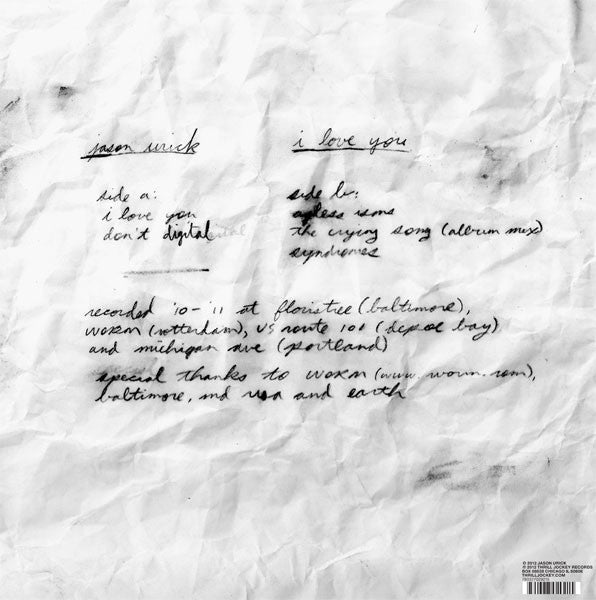 jason urick
i love you
side a:
i love you
don't digital
side b:
ageless isms
the crying song (album mix)
syndromes
recorded '10-'11 at floristree (baltimore),
worm (rotterdam), US route 101 (depoe bay)
and michigan ave (portland)
special thanks to worm (www.worm.com),
baltimore, md usa and earth
© 2012 JASON URICK
℗ 2012 THRILL JOCKEY RECORDS
CHICAGO IL 60608
THRILLJOCKEY.COM